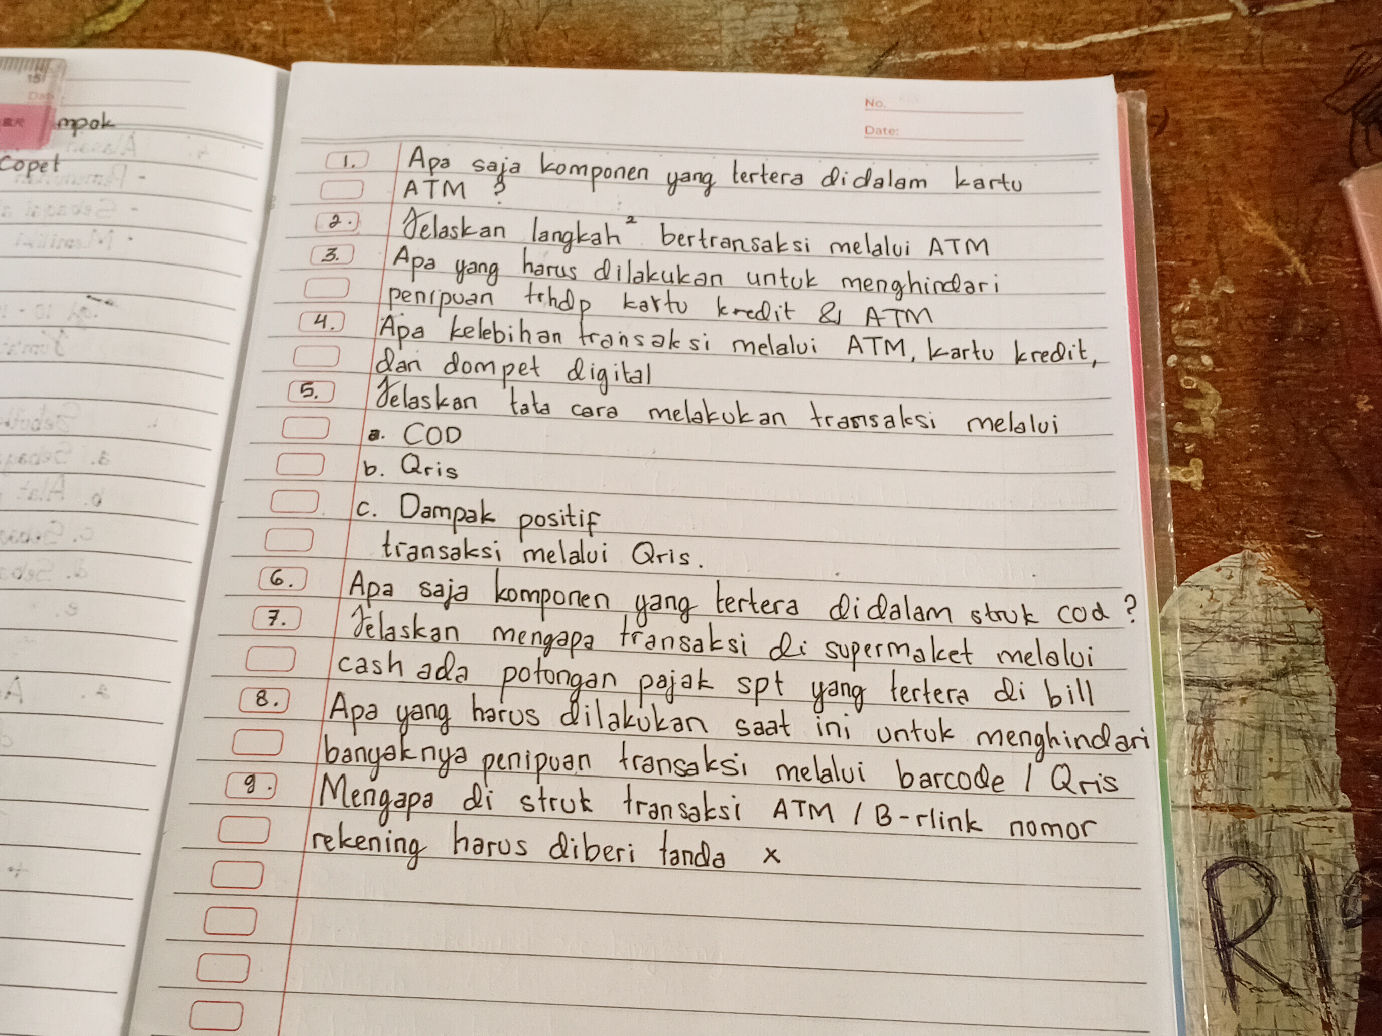 mpok
copet
No.
Date:
1. Apa saja komponen yang tertera didalam kartu
ATM ?
2. Jelaskan langkah² bertransaksi melalui ATM
3. Apa yang harus dilakukan untuk menghindari
penipuan trhdp kartu kredit & ATM
4. Apa kelebihan transaksi melalui ATM, kartu kredit,
dan dompet digital
5. Jelaskan tata cara melakukan transaksi melalui
a. COD
b. Qris
c. Dampak positif
transaksi melalui Qris.
6. Apa saja komponen yang tertera didalam struk cod ?
7. Jelaskan mengapa transaksi di supermaket melalui
cash ada potongan pajak spt yang tertera di bill
8. Apa yang harus dilakukan saat ini untuk menghindari
banyaknya penipuan transaksi melalui barcode / Qris
9. Mengapa di struk transaksi ATM / B-rlink nomor
rekening harus diberi tanda x
RI